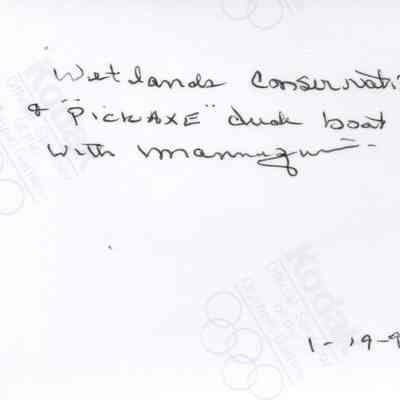 Wetlands Conservati
& "PickAXE" duck boat
with mannequin
1-19-9
Kodak
Kodak